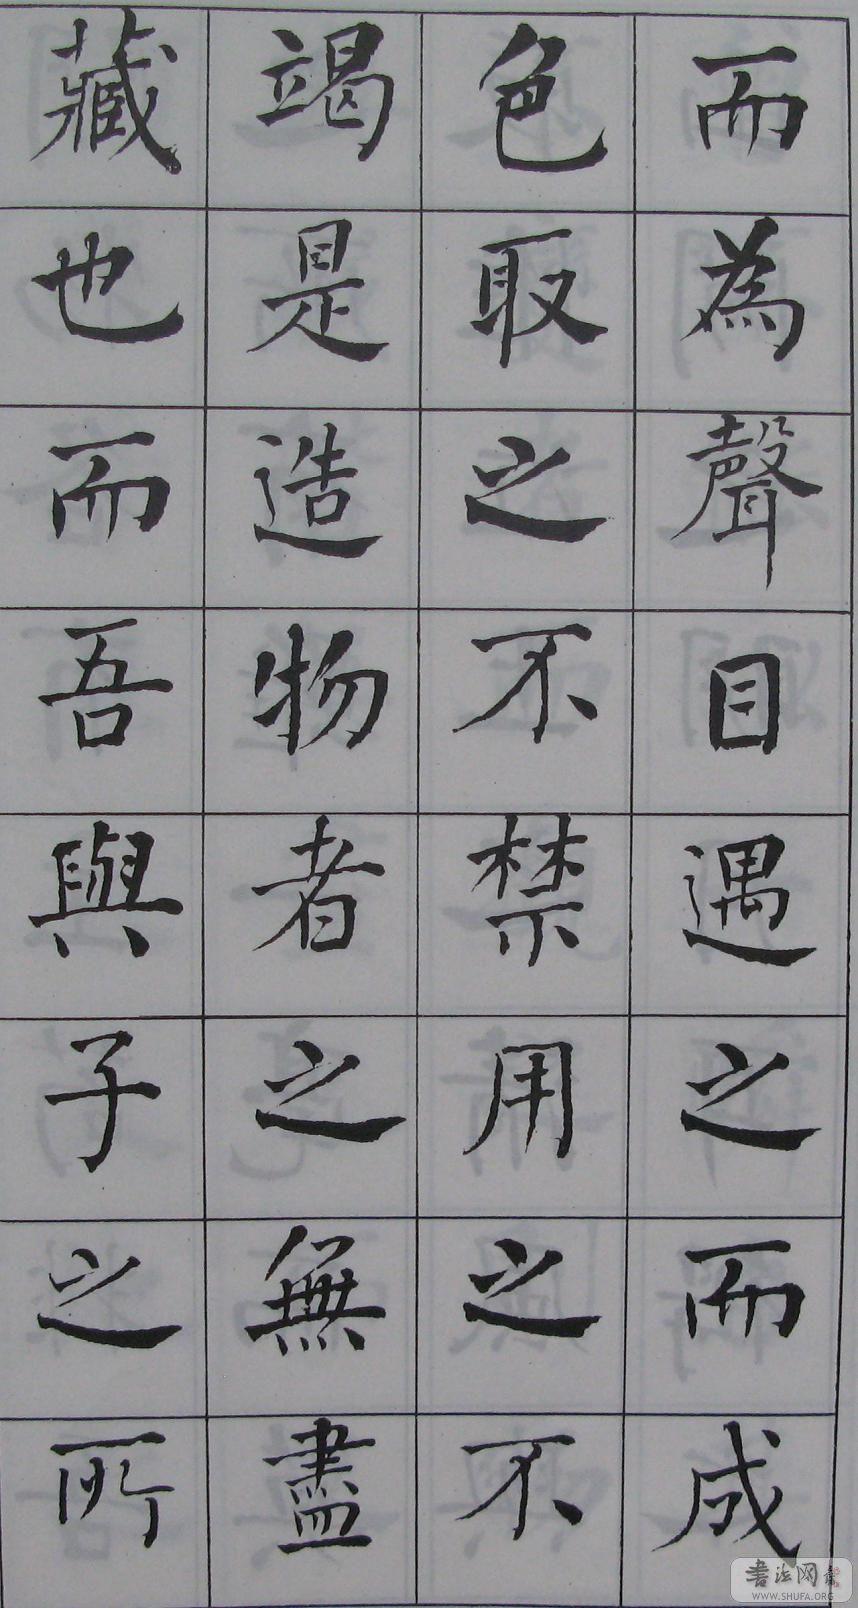 而為聲目遇之而成
色取之不禁用之不
竭是造物者之無盡
藏也而吾與子之所
書法网
WWW.SHUFA.ORG